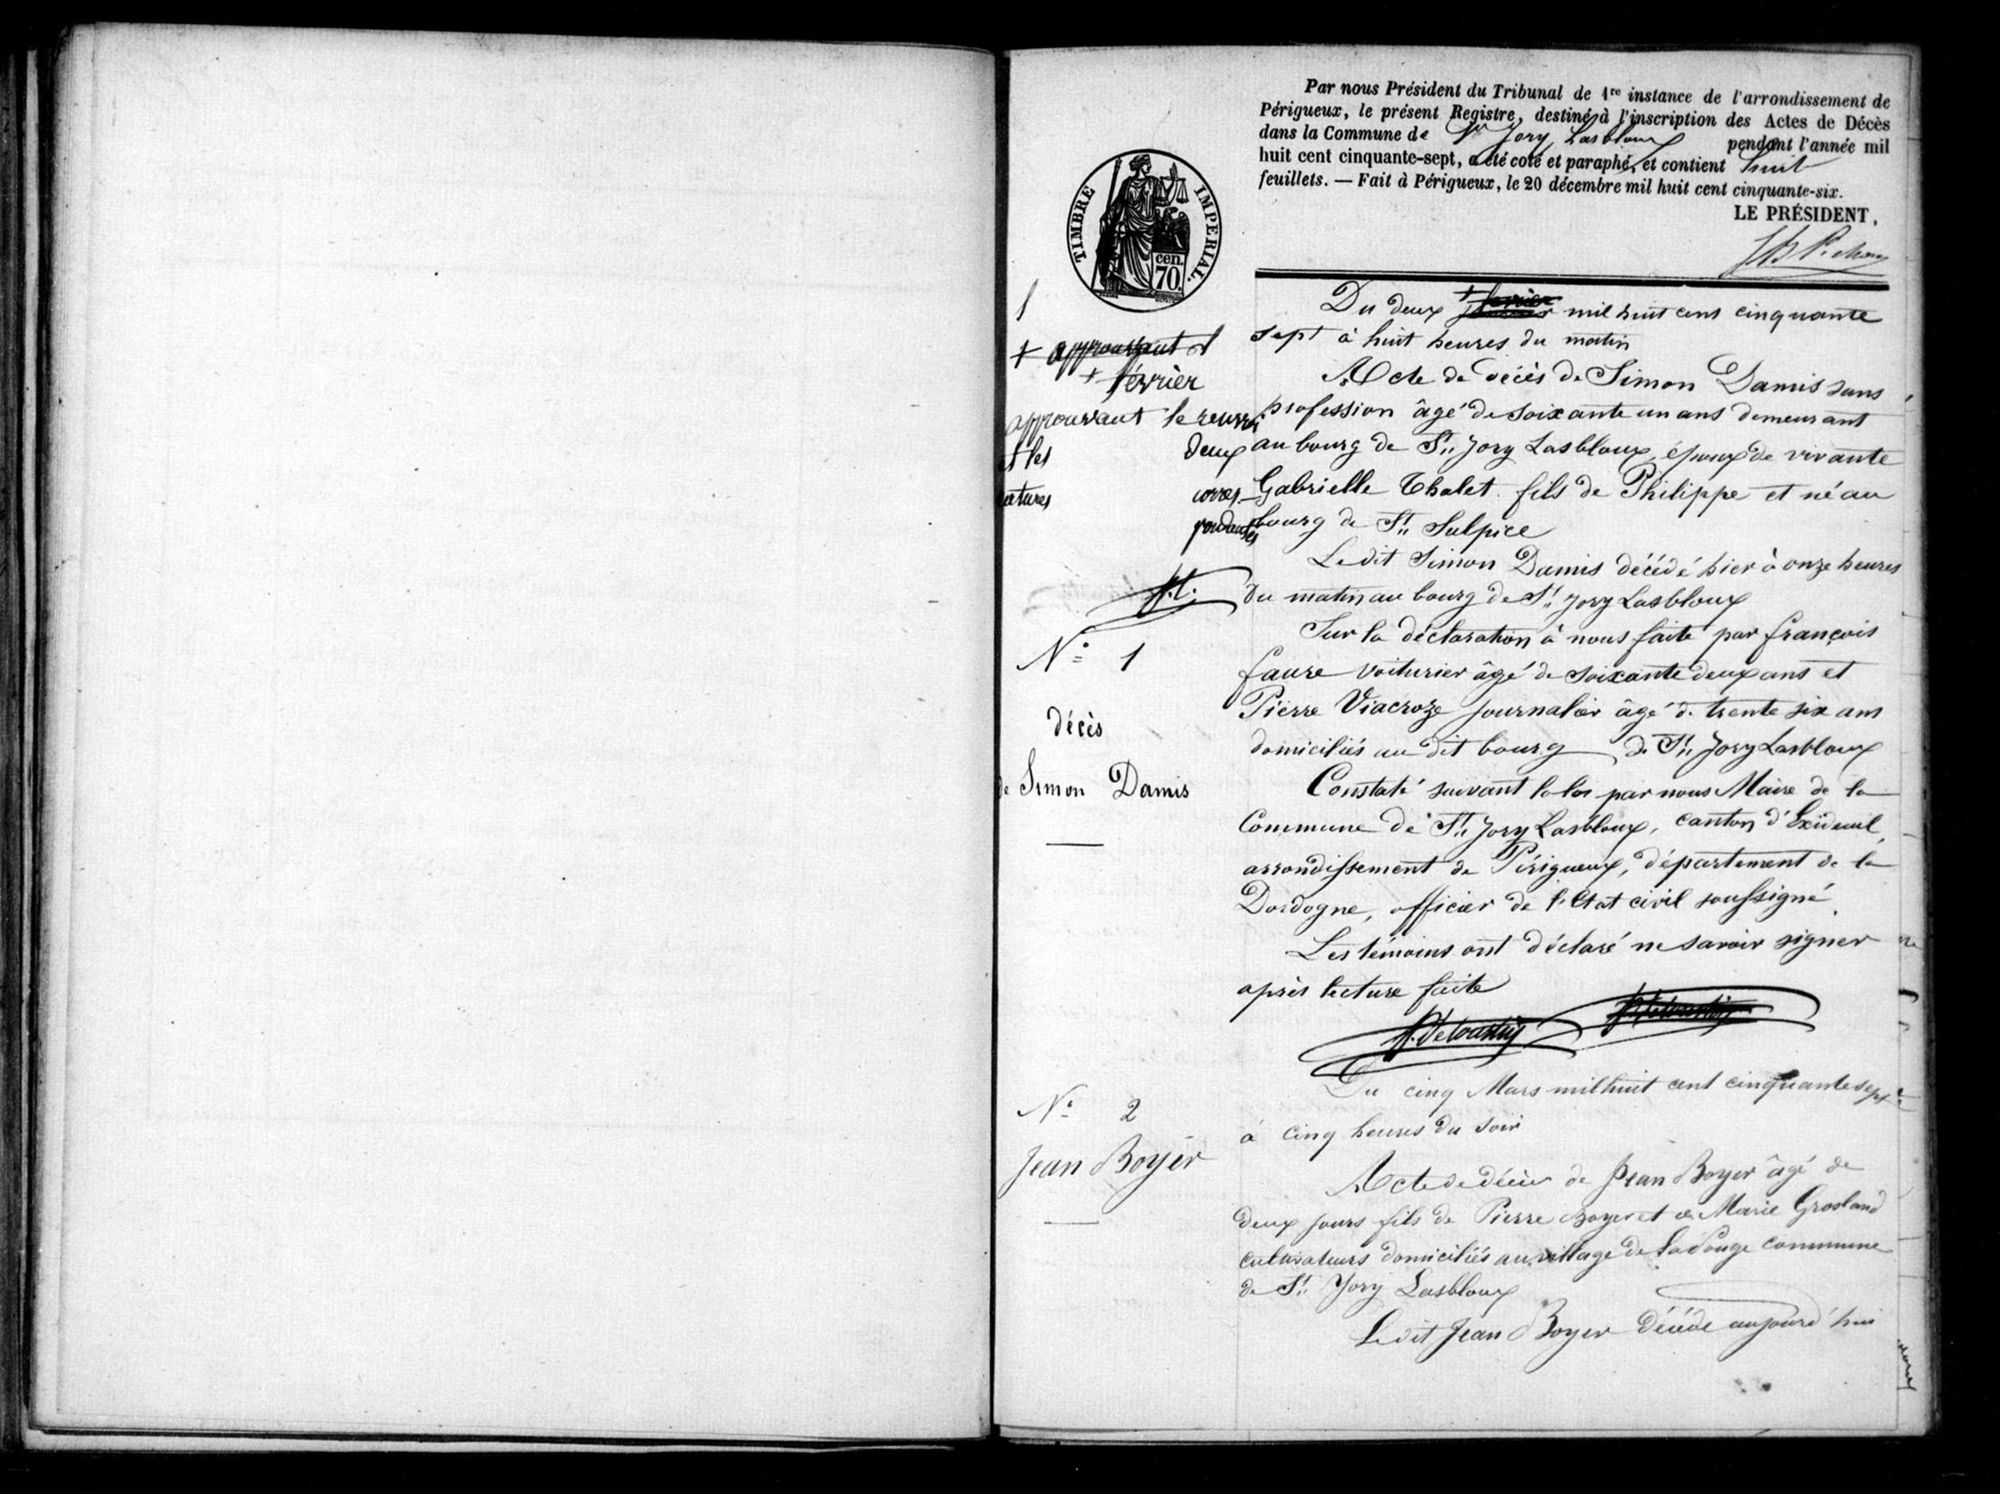 Par nous Président du Tribunal de 1re instance de l'arrondissement de
Périgueux, le présent Registre, destiné à l'inscription des Actes de Décès
dans la Commune de St Jory Lasbloux pendant l'année mil
huit cent cinquante-sept, a été coté et paraphé, et contient huit
feuillets. — Fait à Périgueux, le 20 décembre mil huit cent cinquante-six.
LE PRÉSIDENT,
TIMBRE IMPERIAL.
cen.
70.
1
+ approuvant
+ février
approuvant le renvoi
et les deux
ratures corres-
pondantes
N° 1
décès
de Simon Damis
Du deux + mil huit cent cinquante
sept à huit heures du matin
Acte de décès de Simon Damis sans
profession âgé de soixante un ans demeurant
au bourg de St Jory Lasbloux, époux de vivante
Gabrielle Chalet fils de Philippe et né au
bourg de St Sulpice
Le dit Simon Damis décédé hier à onze heures
du matin au bourg de St Jory Lasbloux
Sur la déclaration à nous faite par françois
faure voiturier âgé de soixante deux ans et
Pierre Viacroze journalier âgé de trente six ans
domiciliés au dit bourg de St Jory Lasbloux
Constaté suivant la loi par nous Maire de la
Commune de St Jory Lasbloux, canton d'Exideuil,
arrondissement de Périgueux, département de la
Dordogne, officier de l'Etat civil soussigné
Les témoins ont déclaré ne savoir signer
après lecture faite
N° 2
Jean Boyer
Du cinq Mars mil huit cent cinquante sept
à cinq heures du soir
Acte de décès de Jean Boyer âgé de
deux jours fils de Pierre Boyer et de Marie Grosland
cultivateurs domiciliés au village de LaPouge commune
de St Jory Lasbloux
Le dit Jean Boyer décédé aujourd'hui